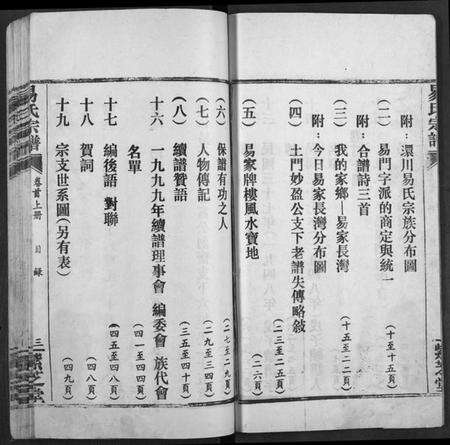 附：還川易氏宗族分布圖
（二）易門字派的商定與統一（十至十五頁）
附：合譜詩三首
（三）我的家鄉—易家長灣（十五至二二頁）
附：今日易家長灣分布圖
（四）土門妙盈公支下老譜失傳略敘（二三至二五頁）
（五）易家牌樓風水寶地（二六頁）
易氏宗譜
（六）保譜有功之人（二七至二九頁）
（七）人物傳記（二九至三四頁）
（八）續譜贊語（三五至四十頁）
十六 一九九九年續譜理事會 編委會 族代會
名單（四一至四四頁）
十七 編後語 對聯（四五至四八頁）
十八 賀詞（四八頁）
十九 宗支世系圖（另有表）（四九頁）
易氏宗譜 卷首上冊 目錄 三